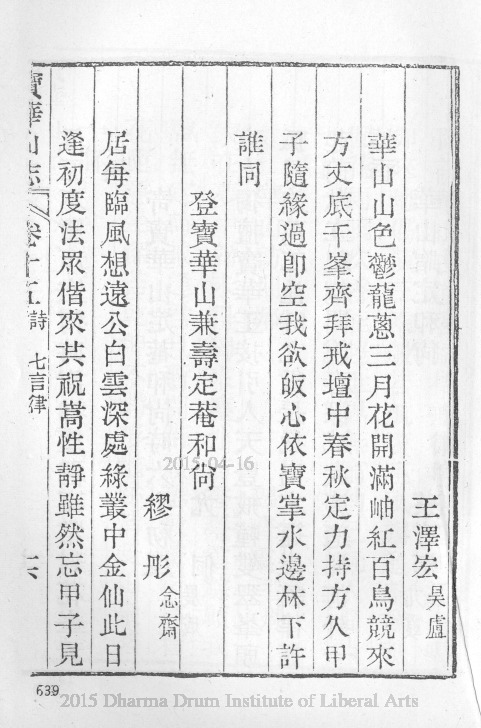 王澤宏昊廬
華山山色鬱龍蔥三月花開滿岫紅百鳥競來
方丈底千峯齊拜戒壇中春秋定力持方久甲
子隨緣過卽空我欲皈心依寶掌水邊林下許
誰同
登寶華山兼壽定菴和尙
繆彤念齋
居每臨風想遠公白雲深處綠叢中金仙此日
逢初度法眾偕來共祝嵩性靜雖然忘甲子見
寶華山志 卷十五 詩 七言律 六
2015-04-16
639
2015 Dharma Drum Institute of Liberal Arts